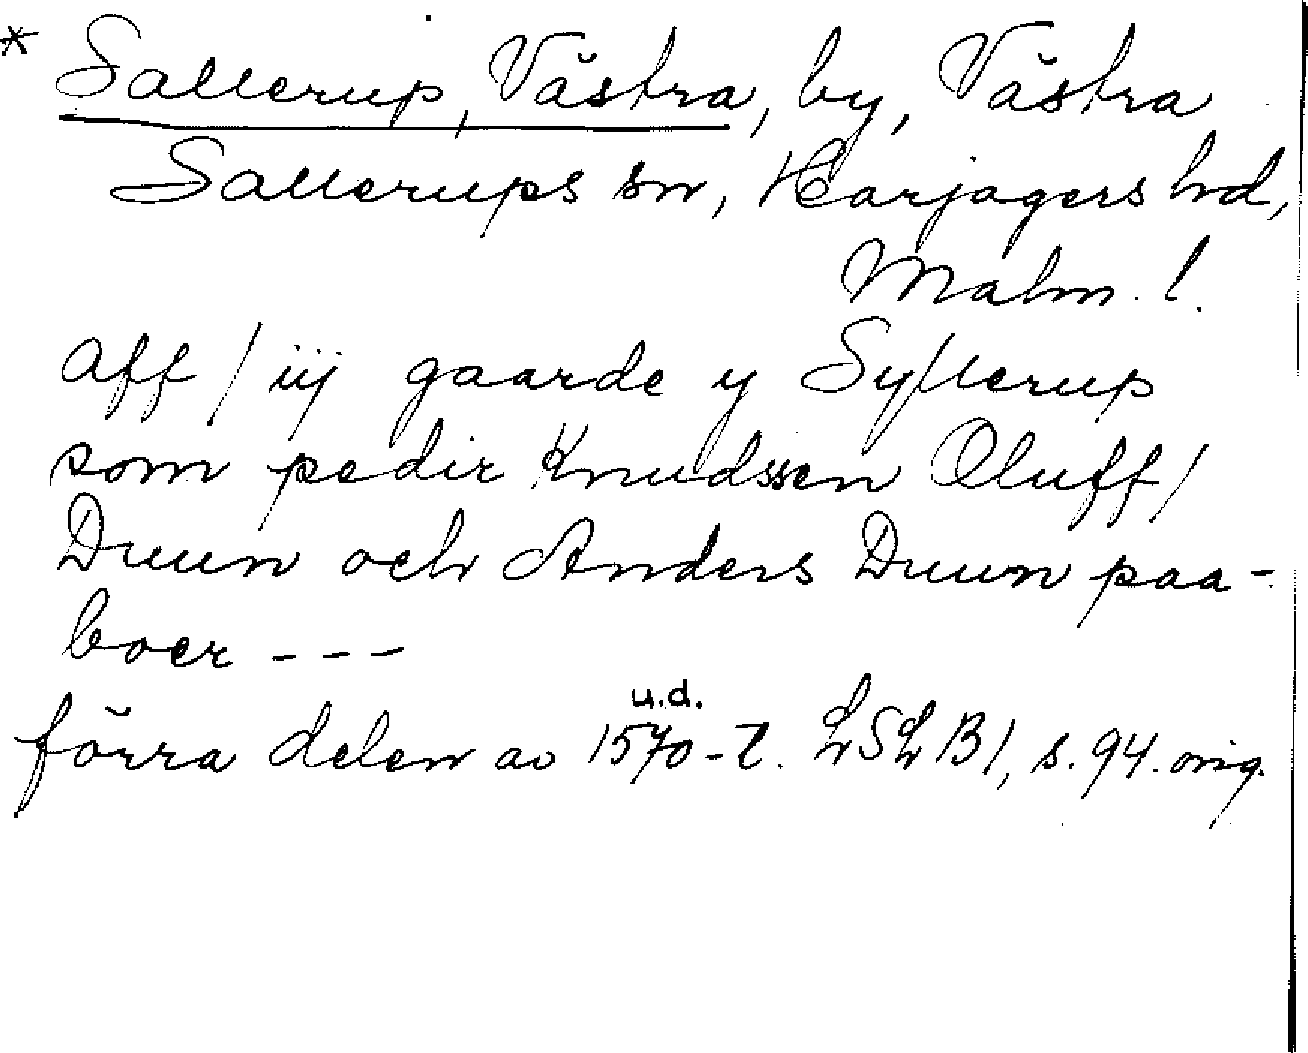 * Sallerup, Västra, by, Västra
Sallerups sn, Harjagers hd,
Malm. l.
Aff / iij gaarde y Syllerup
som pedir Knudssen Oluff /
Duun och Anders Duun paa-
boer - - -
u.d.
förra delen av 1570-t. LSLB1, s. 94. orig.